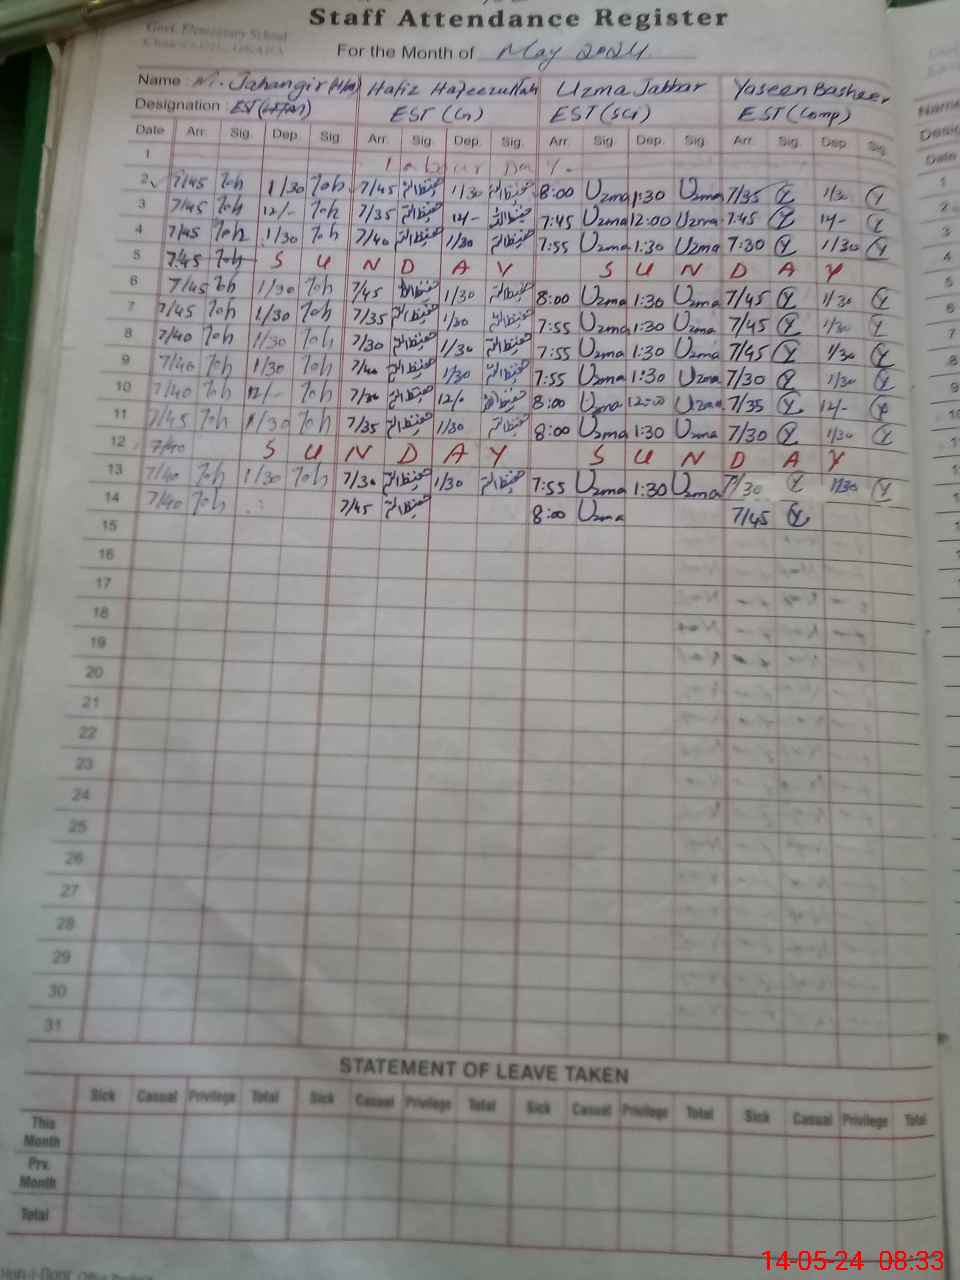 Staff Attendance Register
Govt. Elementary School
For the Month of May 2024
Name : M. Jahangir Hafiz Hafeezullah Uzma Jabbar Yaseen Basheer
Designation : EST EST EST (Sci) EST (Comp)
Date Arr. Sig. Dep. Sig. Arr. Sig. Dep. Sig. Arr. Sig. Dep. Sig. Arr. Sig. Dep. Sig.
1 Labour Day.
2 7/45 1/30 7/45 حفیظ اللہ 1/30 حفیظ اللہ 8:00 Uzma 1:30 Uzma 7/35 1/30
3 7/45 12/- 7/35 حفیظ اللہ 12/- حفیظ اللہ 7:45 Uzma 12:00 Uzma 7:45 12/-
4 7/45 1/30 7/40 حفیظ اللہ 1/30 حفیظ اللہ 7:55 Uzma 1:30 Uzma 7:30 1/30
5 7:45 S U N D A Y S U N D A Y
6 7/45 1/30 7/45 حفیظ اللہ 1/30 حفیظ اللہ 8:00 Uzma 1:30 Uzma 7/45 1/30
7 7/45 1/30 7/35 حفیظ اللہ 1/30 حفیظ اللہ 7:55 Uzma 1:30 Uzma 7/45 1/30
8 7/40 1/30 7/30 حفیظ اللہ 1/30 حفیظ اللہ 7:55 Uzma 1:30 Uzma 7/45 1/30
9 7/40 1/30 7/40 حفیظ اللہ 1/30 حفیظ اللہ 7:55 Uzma 1:30 Uzma 7/30 1/30
10 7/40 12/- 7/30 حفیظ اللہ 12/- حفیظ اللہ 8:00 Uzma 12:00 Uzma 7/35 12/-
11 7/45 1/30 7/35 حفیظ اللہ 1/30 حفیظ اللہ 8:00 Uzma 1:30 Uzma 7/30 1/30
12 7/40 S U N D A Y S U N D A Y
13 7/40 1/30 7/30 حفیظ اللہ 1/30 حفیظ اللہ 7:55 Uzma 1:30 Uzma 7/30 1/30
14 7/40 7/45 حفیظ اللہ 8:00 Uzma 7/45
15
16
17
18
19
20
21
22
23
24
25
26
27
28
29
30
31
STATEMENT OF LEAVE TAKEN
Sick Casual Privilege Total Sick Casual Privilege Total Sick Casual Privilege Total Sick Casual Privilege Total
This Month
Prv. Month
Total
14-05-24 08:33